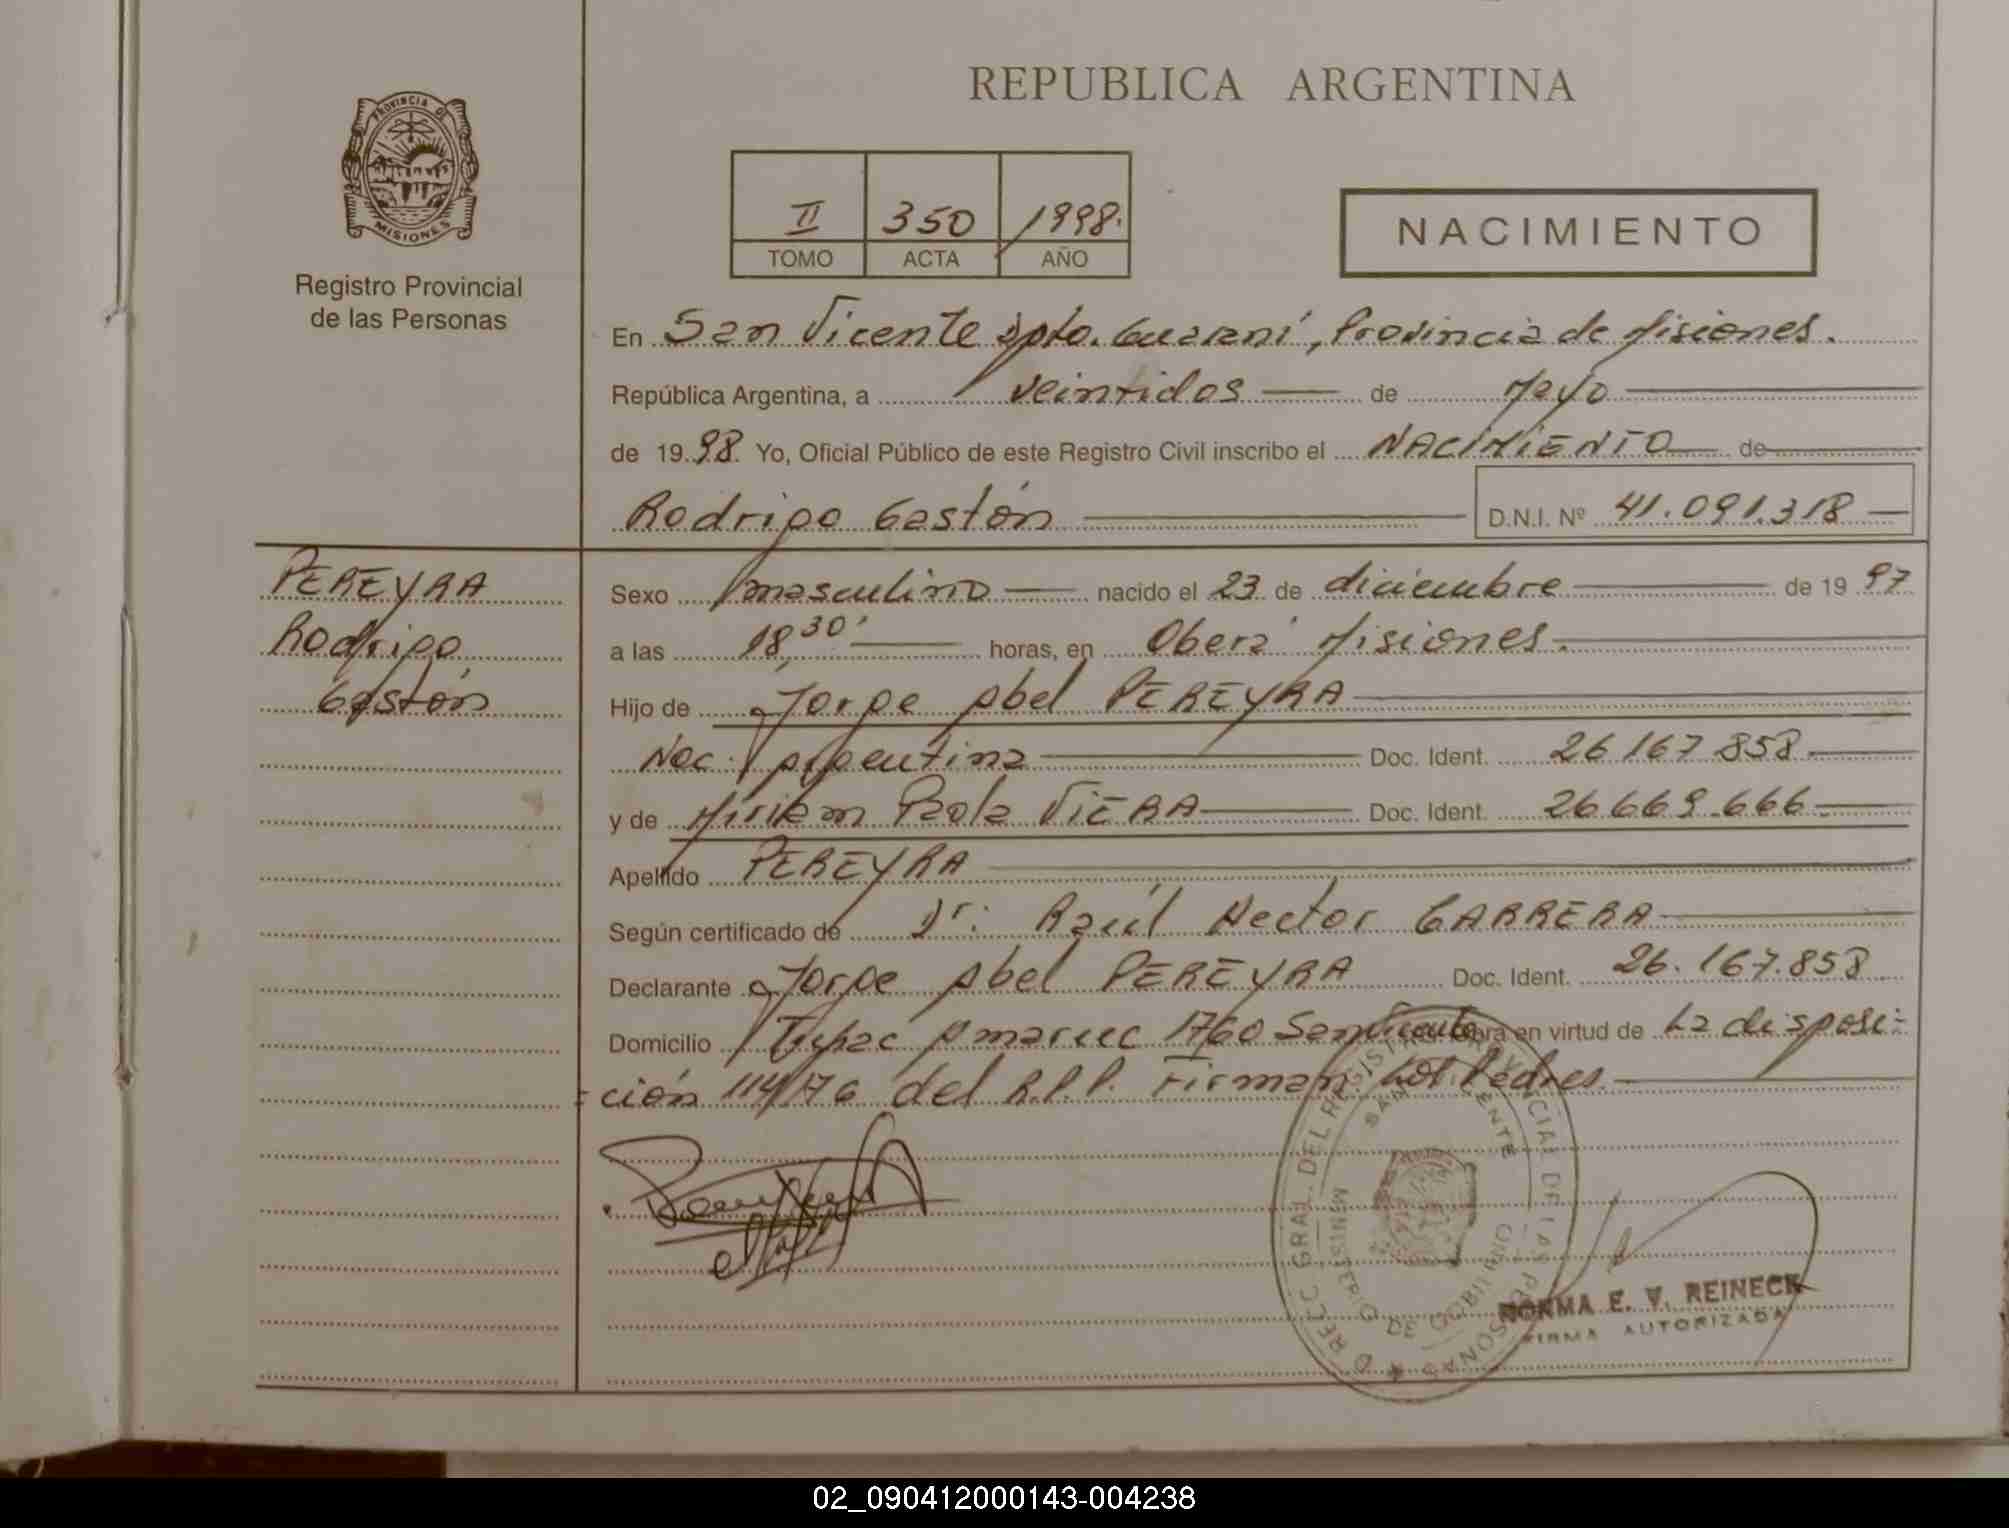 REPUBLICA ARGENTINA
PROVINCIA DE
MISIONES
Registro Provincial
de las Personas
II 350 1998.
TOMO ACTA AÑO
NACIMIENTO
En San Vicente Dpto. Guaraní, Provincia de Misiones.
República Argentina, a veintidos de Mayo
de 19 98 Yo, Oficial Público de este Registro Civil inscribo el NACIMIENTO de
Rodrigo Gastón D.N.I. Nº 41.091.318
PEREYRA
Rodrigo
Gastón
Sexo masculino nacido el 23 de diciembre de 19 97
a las 18,30' horas, en Oberá Misiones.
Hijo de Jorge Abel PEREYRA
Nac. Argentina Doc. Ident. 26.167.858
y de Miriam Paola VIERA Doc. Ident. 26.669.666
Apellido PEREYRA
Según certificado de Dr. Raúl Hector CABRERA
Declarante Jorge Abel PEREYRA Doc. Ident. 26.167.858
Domicilio Tupac Amaruc 1760 San Vicente obra en virtud de La disposi=
=ción 114/76 del R.P.P. Firman Los Padres.
DIRECC. GRAL. DEL REGISTRO PROVINCIAL DE LAS PERSONAS
SAN VICENTE
MINISTERIO DE GOBIERNO
NORMA E. V. REINECK
FIRMA AUTORIZADA
02_090412000143-004238